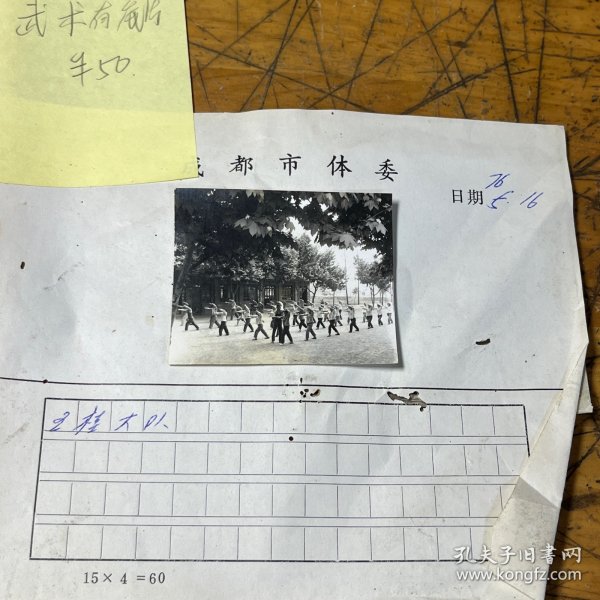 武术有底片
¥50.
成都市体委
日期 76 5.16
玉桂大队
15×4=60
孔夫子旧书网
www.kongfz.com